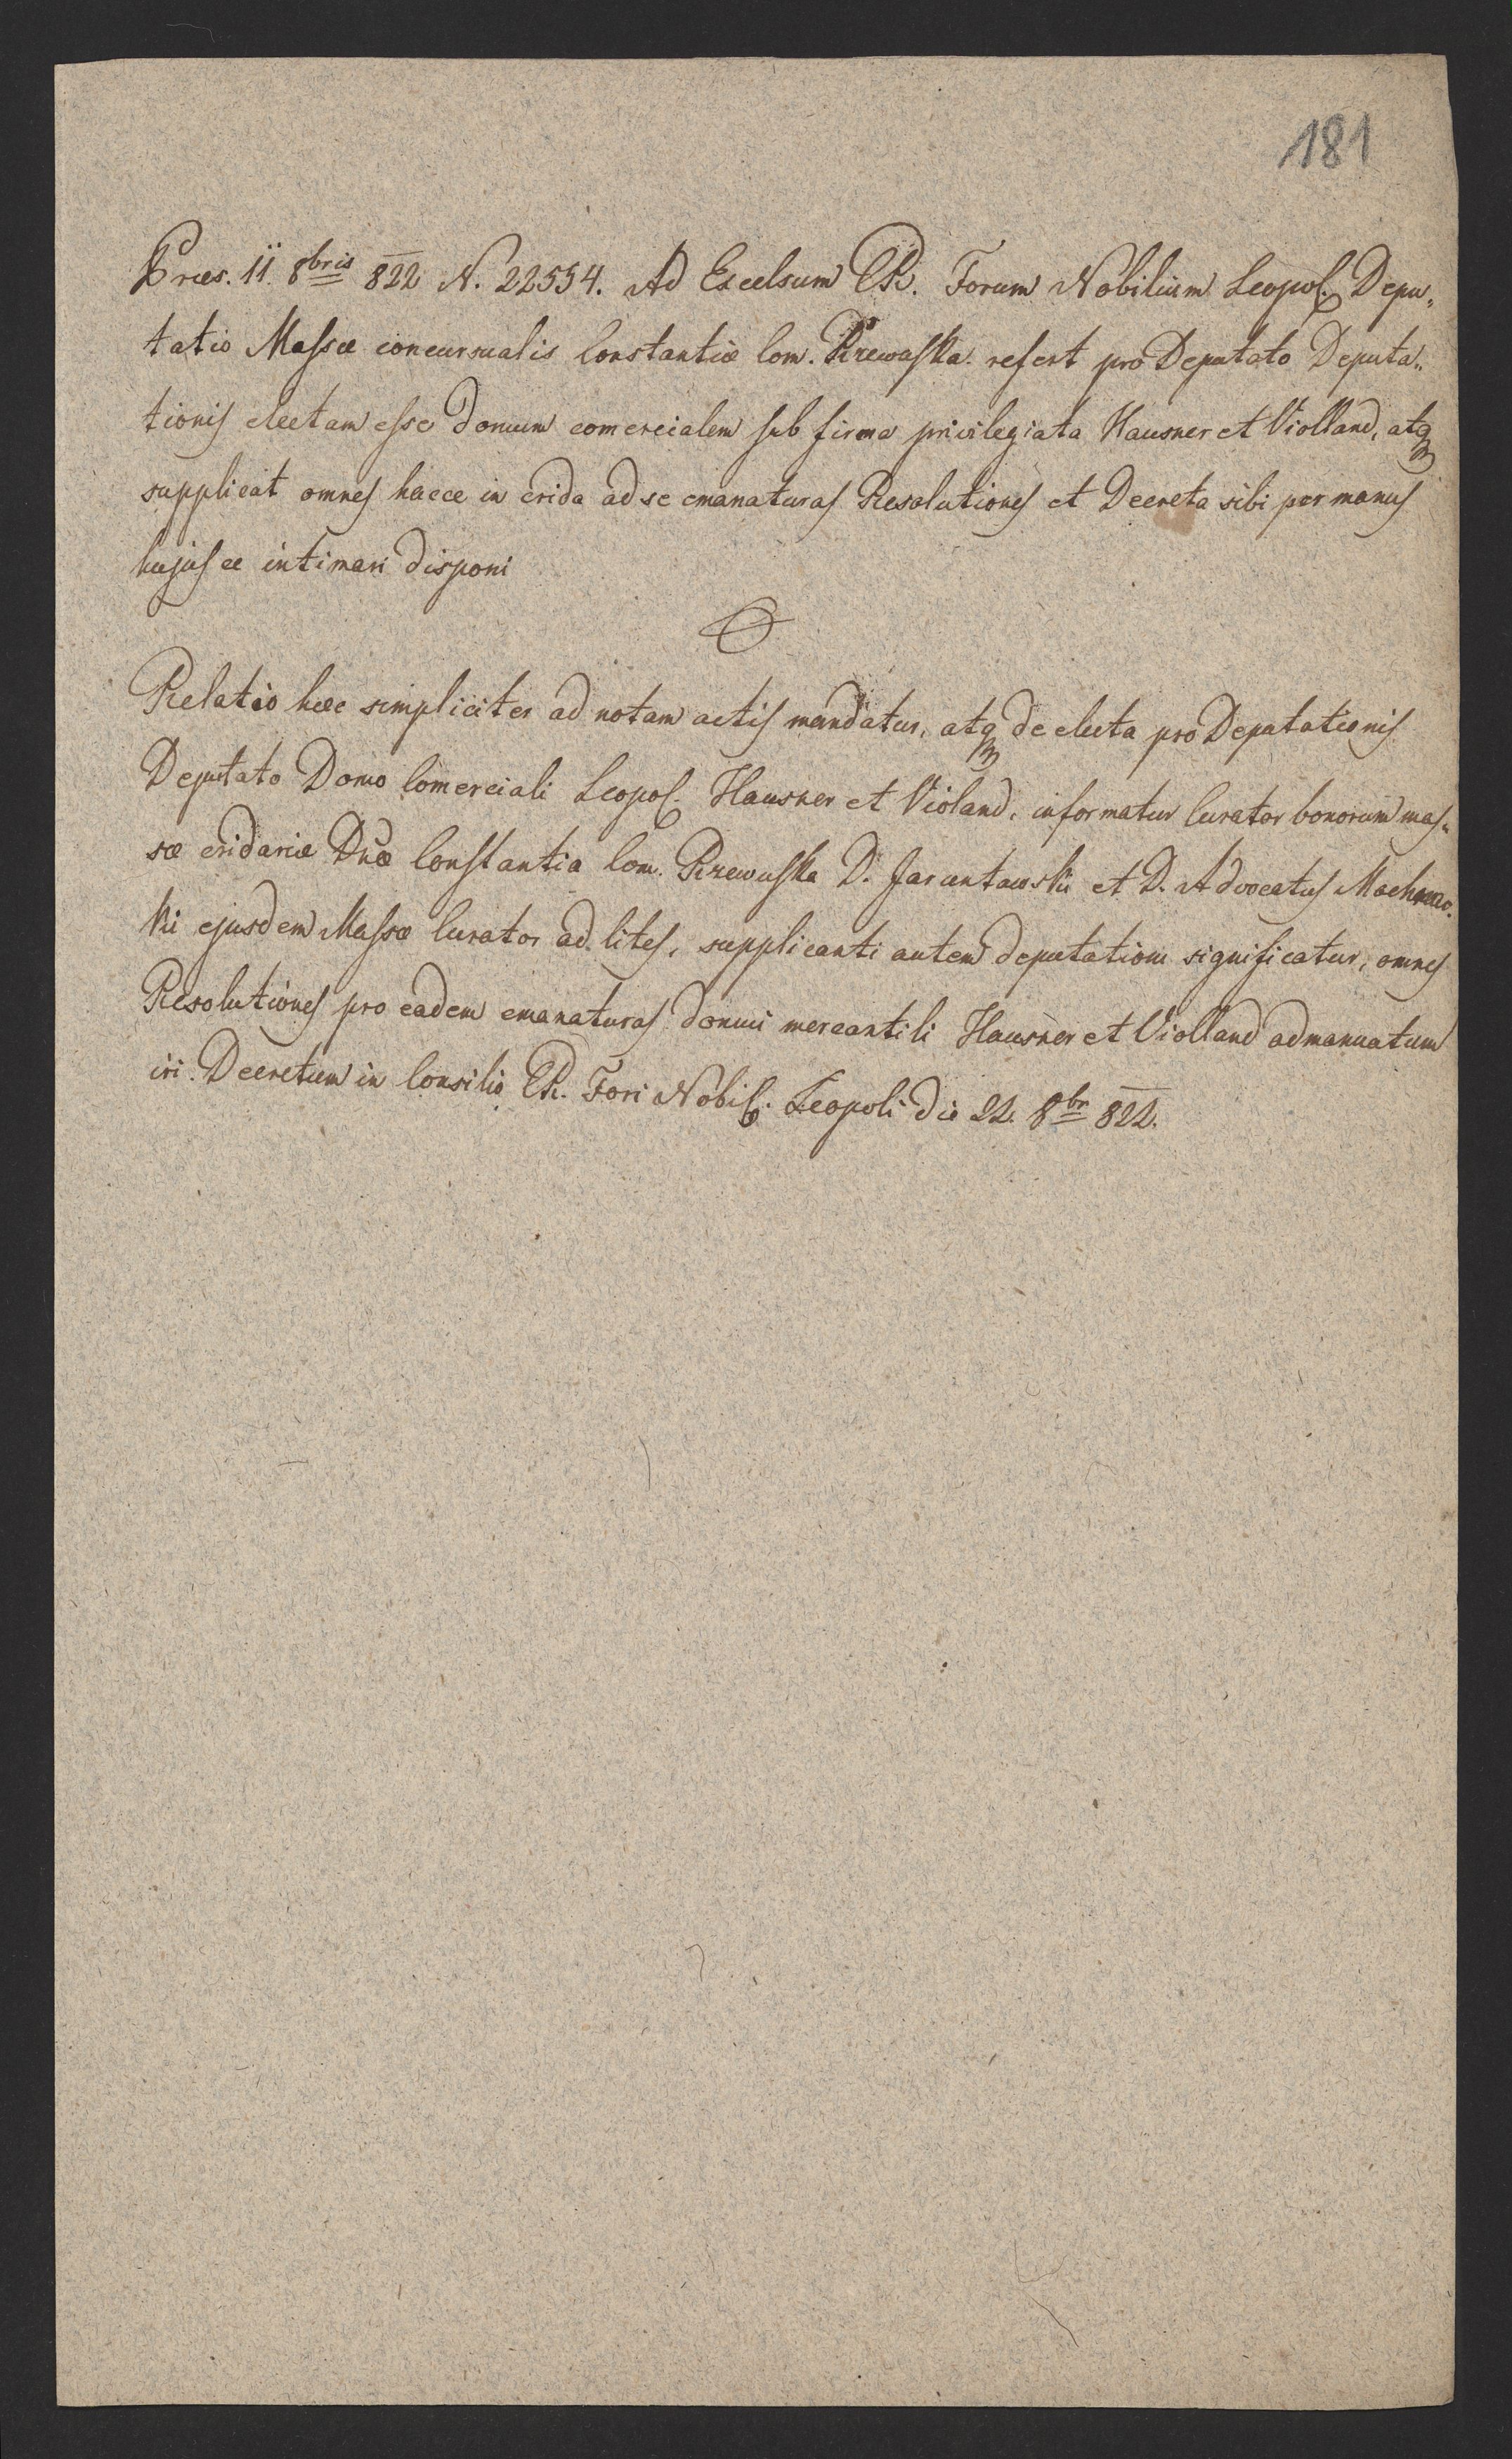 181
Præs. 11. 8bris 822 N. 22554. Ad Excelsum CR. Forum Nobilium Leopol. Depu„
tatio Massæ concursualis Constantiæ Com. Rzewuska refert pro Deputato Deputa„
tionis electam esse Domum comercialem sub firma privilegiata Hausner et Violland, atq
supplicat omnes hacce in crida ad se emanaturas Resolutiones et Decreta sibi per manus
hujusce intimari disponi
Relatio hæc simpliciter ad notam actis mandatur, atq de electa pro Deputationis
Deputato Domo Comerciali Leopol. Hausner et Violand, informatur Curator bonorum mas„
sæ cridariæ Dnæ Constantia Com. Rzewuska D. Jaruntowski et D. Advocatus
ki ejusdem Massæ Curator ad lites, supplicanti autem deputationi significatur, omnes
Resolutiones pro eadem emanaturas domui mercantili Hausner et Violland admanuatum
iri. Decretum in Consilio CR. Fori Nobil. Leopoli die 22. 8br 822.